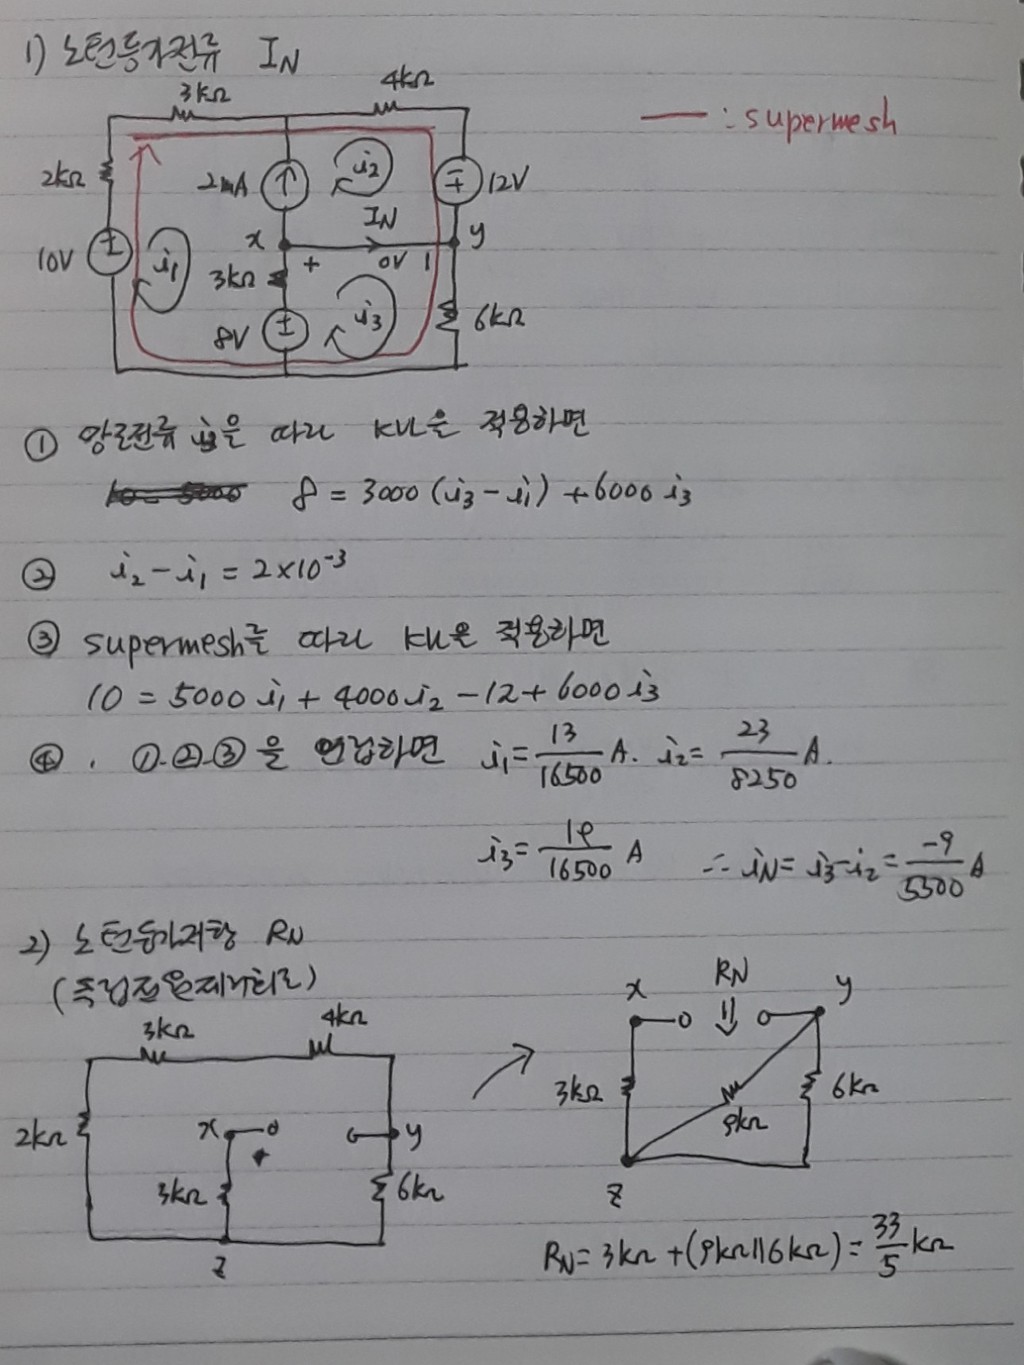 1) 노턴등가전류 I_N
3kΩ 4kΩ
— : supermesh
2kΩ 2mA i₂ 12V
I_N
x y
10V i₁ 3kΩ + 0V
8V i₃ 6kΩ
① 망로전류 i₃을 따라 KVL을 적용하면
8 = 3000 (i₃ - i₁) + 6000 i₃
② i₂ - i₁ = 2×10⁻³
③ supermesh를 따라 KVL을 적용하면
10 = 5000 i₁ + 4000 i₂ - 12 + 6000 i₃
④. ①.②.③ 을 연립하면 i₁ = 13/16500 A. i₂ = 23/8250 A.
i₃ = 19/16500 A ∴ i_N = i₃ - i₂ = -9/5500 A
2) 노턴등가저항 R_N
(독립전원제거회로)
3kΩ 4kΩ
2kΩ x y
3kΩ 6kΩ
z
x R_N y
3kΩ 9kΩ 6kΩ
z
R_N = 3kΩ + (9kΩ||6kΩ) = 33/5 kΩ